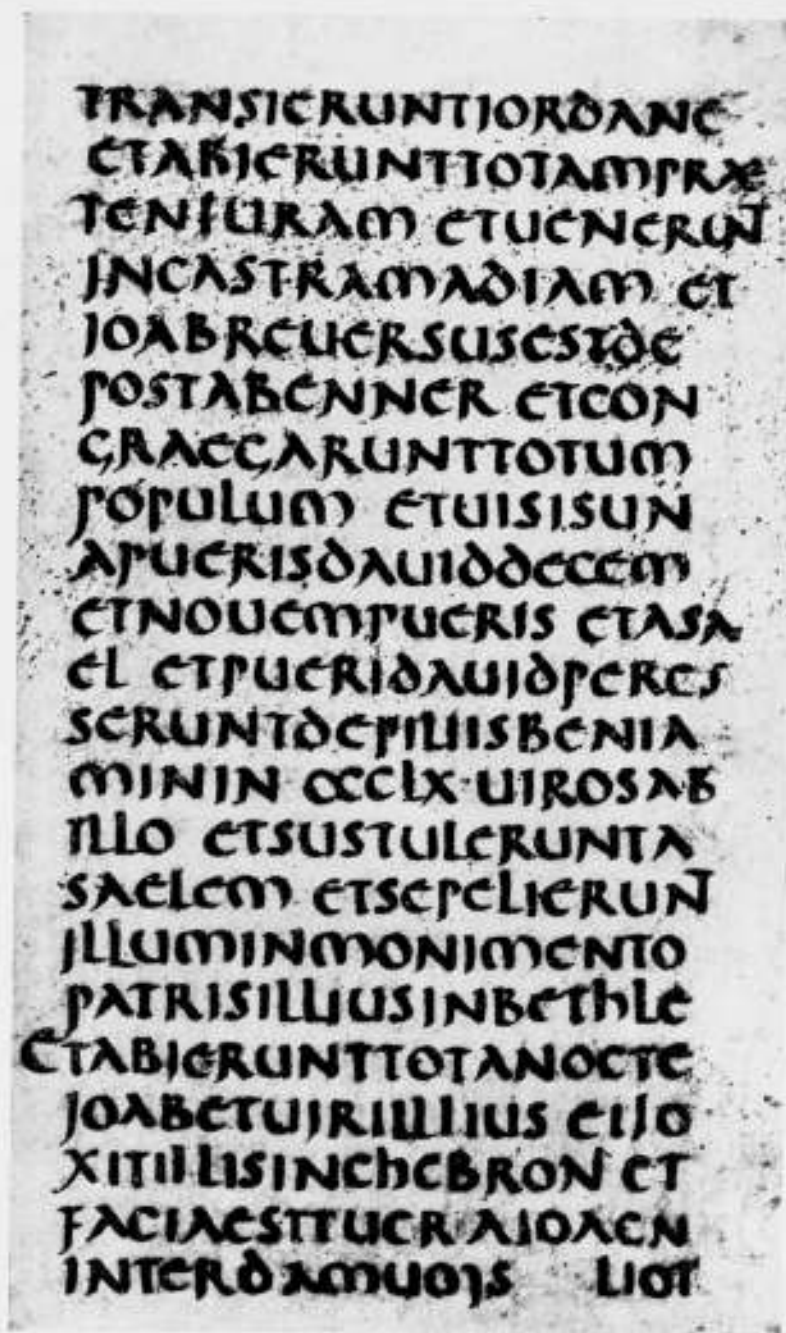 TRANSIERUNTIORDANE
ETABIERUNTTOTAMPRAE
TENSURAM ETUENERUNT
INCASTRAMADIAM ET
IOABREUERSUSESTDE
POSTABENNER ETCON
GRAEGARUNTTOTUM
POPULUM ETUISISUN̈
APUERISDAUIDDECEM
ETNOUEMPUERIS ETASA
EL ETPUERIDAUIDPERES
SERUNTDEFILIISBENIA
MININ CCCLX·UIROSAB
ILLO ETSUSTULERUNTA
SAELEM ETSEPELIERUNT
ILLUMINMONIMENTO
PATRISILLIUSINBETHLE
ETABIERUNTTOTANOCTE
IOABETUIRIILLIUS EIIO
XITILLISINCHEBRON ET